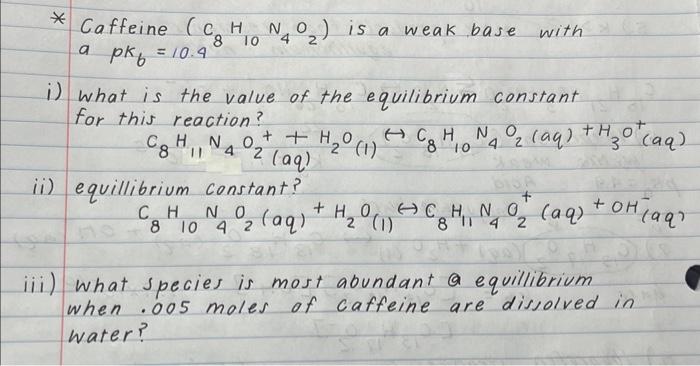 * Caffeine (C₈H₁₀N₄O₂) is a weak base with
a pK_b = 10.4
i) what is the value of the equilibrium constant
for this reaction?
C₈H₁₁N₄O₂⁺(aq) + H₂O(l) ↔ C₈H₁₀N₄O₂(aq) + H₃O⁺(aq)
ii) equillibrium constant?
C₈H₁₀N₄O₂(aq) + H₂O(l) ↔ C₈H₁₁N₄O₂⁺(aq) + OH⁻(aq)
iii) what species is most abundant @ equillibrium
when .005 moles of caffeine are dissolved in
water?